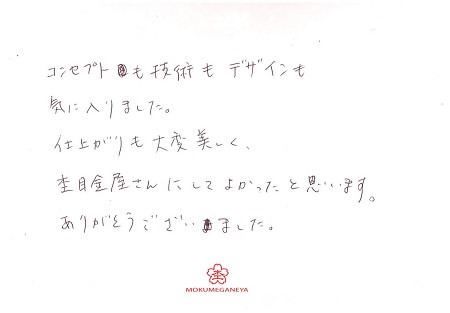 コンセプトも技術もデザインも
気に入りました。
仕上がりも大変美しく、
杢目金屋さんにしてよかったと思います。
ありがとうございました。
MOKUMEGANEYA